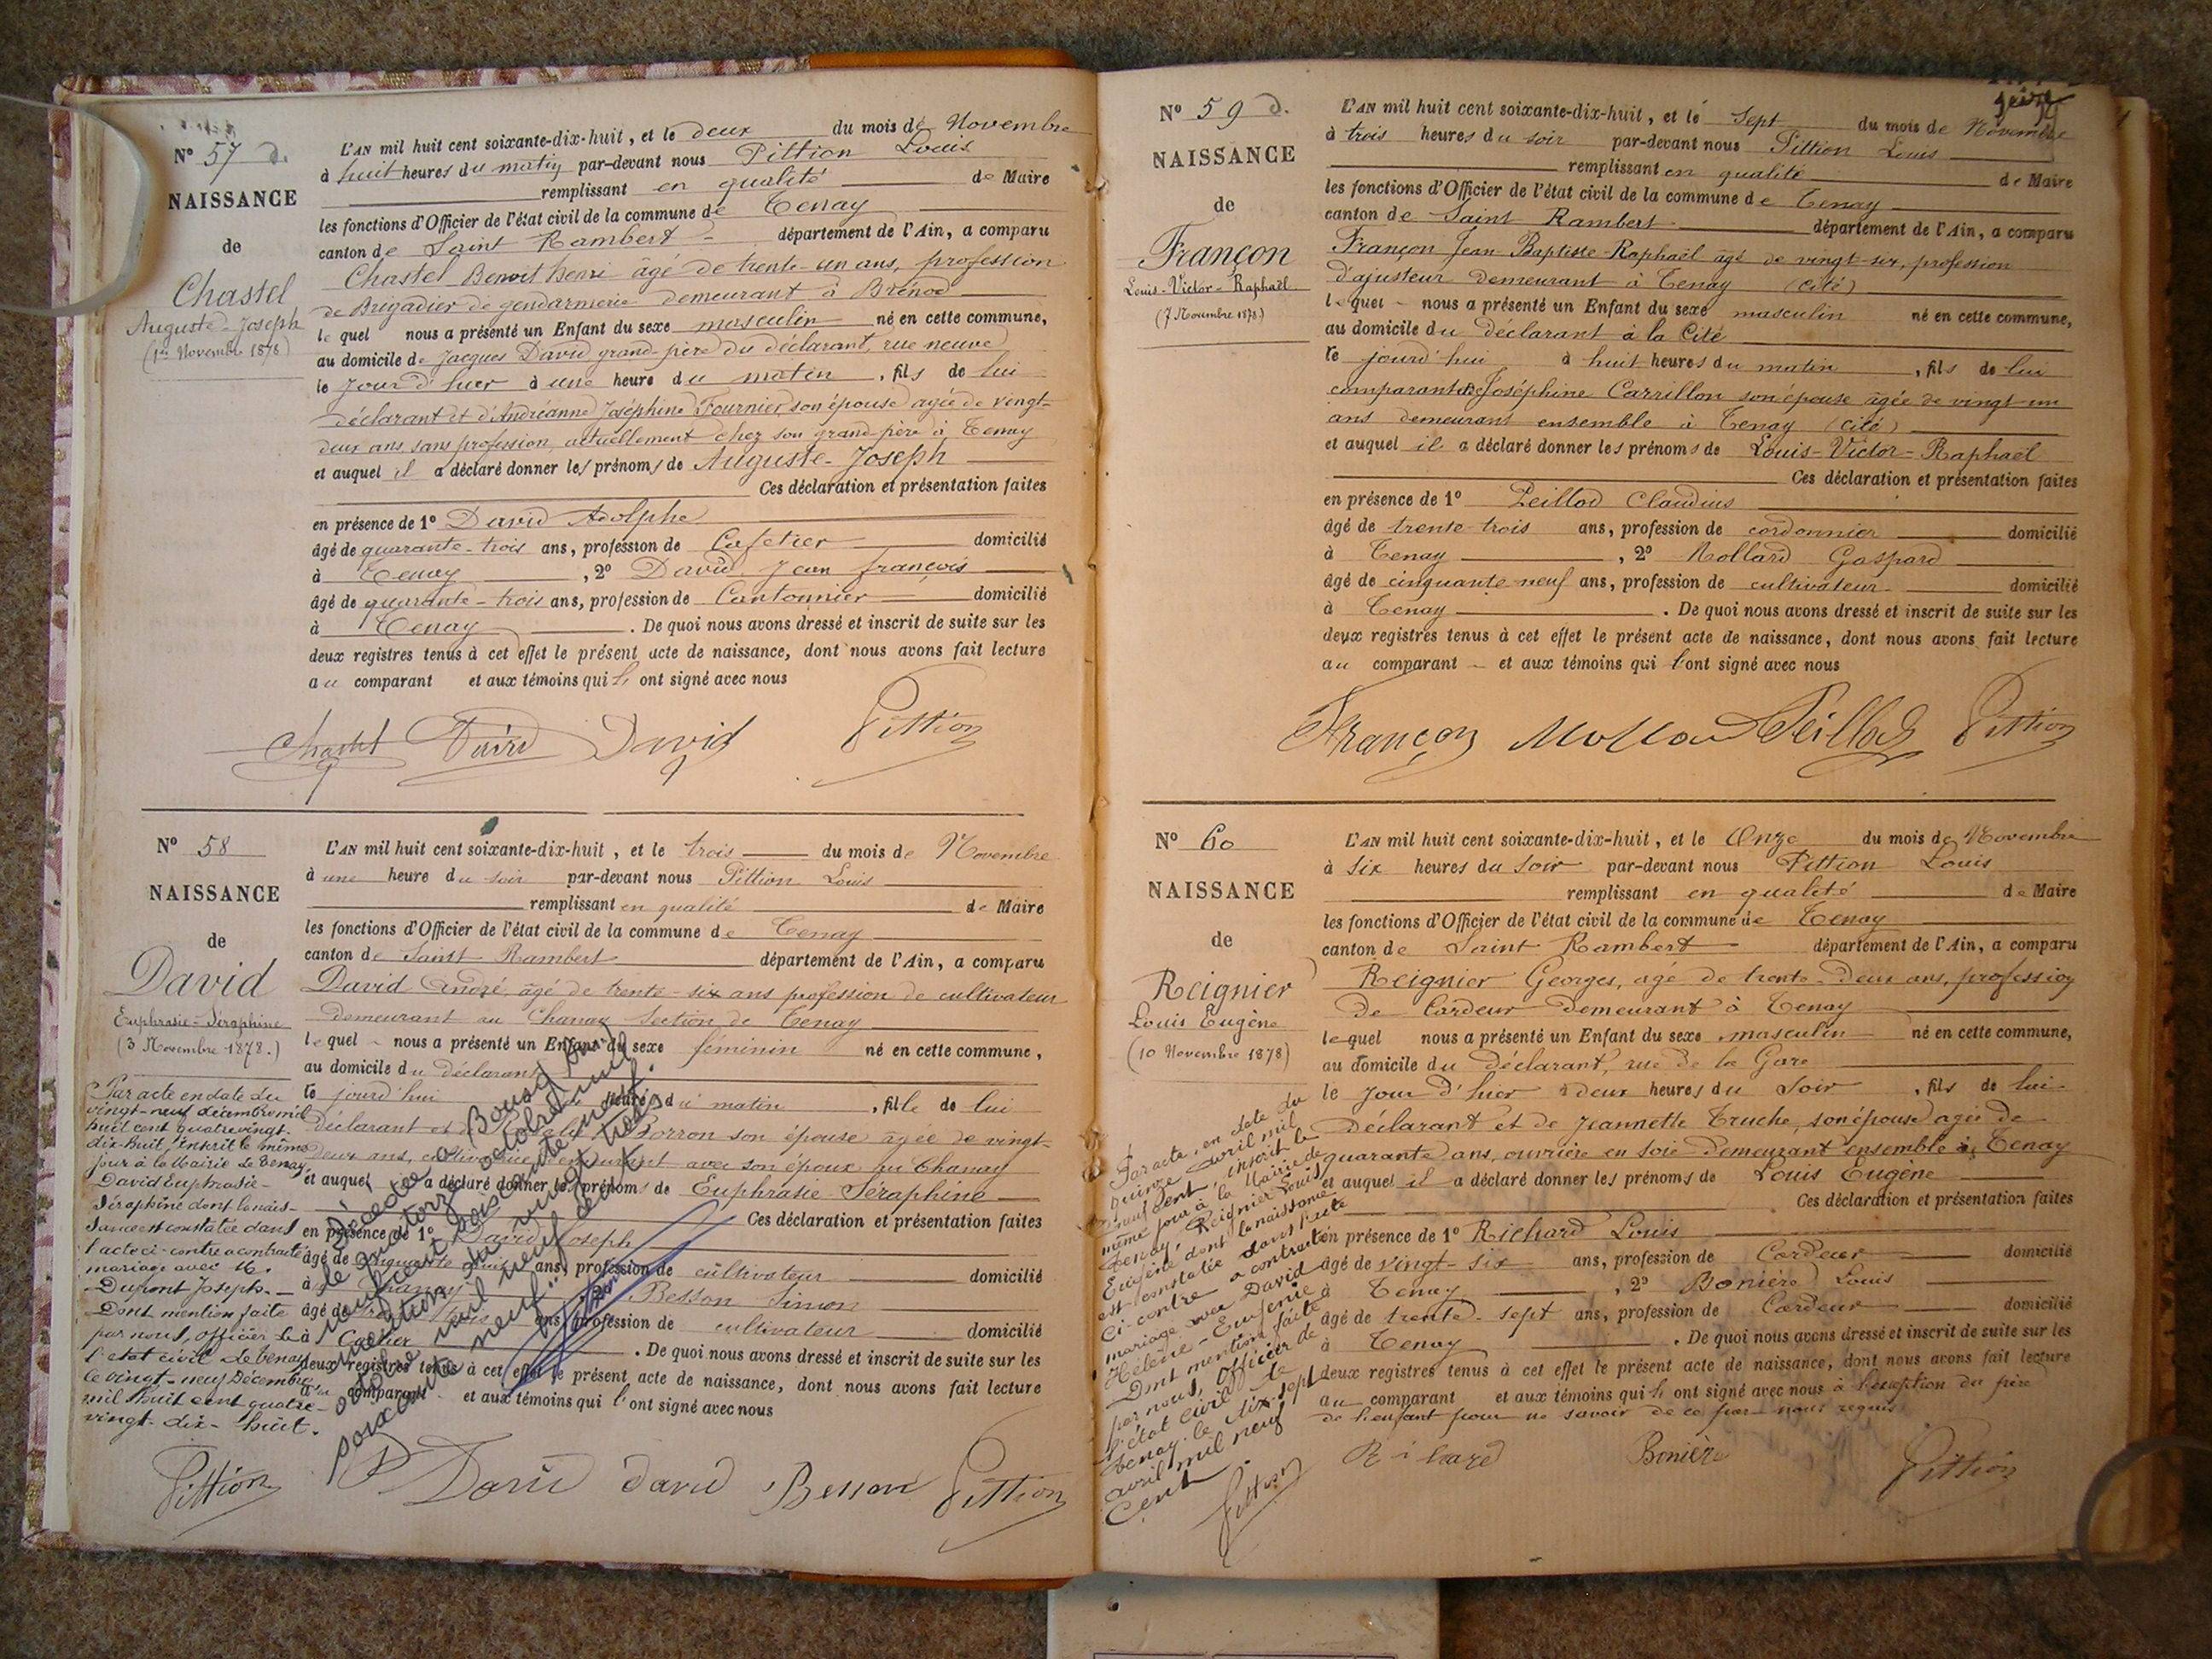 N° 57 d.
NAISSANCE
de
Chastel
Auguste-Joseph
(1er Novembre 1878)
L'AN mil huit cent soixante-dix-huit, et le deux du mois de Novembre
à huit heures du matin par-devant nous Pittion Louis
remplissant en qualité de Maire
les fonctions d'Officier de l'état civil de la commune de Tenay
canton de Saint Rambert département de l'Ain, a comparu
Chastel Benoit Henri âgé de trente-un ans, profession
de Brigadier de gendarmerie demeurant à Brénod
lequel nous a présenté un Enfant du sexe masculin né en cette commune,
au domicile de Jacques David grand-père du déclarant, rue neuve
le jour d'hier à une heure du matin, fils de lui
déclarant et d'Andréanne Joséphine Fournier son épouse agée de vingt-
deux ans, sans profession, actuellement chez son grand-père à Tenay
et auquel il a déclaré donner les prénoms de Auguste-Joseph
Ces déclaration et présentation faites
en présence de 1° David Adolphe
âgé de quarante-trois ans, profession de Cafetier domicilié
à Tenay, 2° David Jean françois
âgé de quarante-trois ans, profession de Cantonnier domicilié
à Tenay. De quoi nous avons dressé et inscrit de suite sur les
deux registres tenus à cet effet le présent acte de naissance, dont nous avons fait lecture
au comparant et aux témoins qui l' ont signé avec nous
Chastel David David Pittion
N° 58
NAISSANCE
de
David
Euphrasie-Séraphine
(3 Novembre 1878.)
Par acte en date du
vingt-neuf décembre mil
huit cent quatre vingt-
dix-huit, inscrit le même
jour à la Mairie de Tenay,
David Euphrasie-
Séraphine dont la nais-
sance est constatée dans
l'acte ci-contre a contracté
mariage avec M.
Dupont Joseph.
Dont mention faite
par nous, officier de
l'état civil de Tenay
le vingt-neuf Décembre
mil huit cent quatre-
vingt-dix-huit.
Pittion
L'AN mil huit cent soixante-dix-huit, et le trois du mois de Novembre
à une heure du soir par-devant nous Pittion Louis
remplissant en qualité de Maire
les fonctions d'Officier de l'état civil de la commune de Tenay
canton de Saint Rambert département de l'Ain, a comparu
David André, âgé de trente-six ans profession de cultivateur
demeurant au Chanay section de Tenay
lequel nous a présenté un Enfant du sexe féminin né en cette commune,
au domicile du déclarant
le jourd'hui heures du matin, fille de lui
déclarant et de Borron son épouse âgée de vingt-
deux ans, cultivatrice demeurant avec son époux au Chanay
et auquel a déclaré donner les prénoms de Euphrasie Séraphine
Ces déclaration et présentation faites
en présence de 1° David Joseph
âgé de cinquante ans, profession de cultivateur domicilié
à Chanay Besson Simon
âgé de ans, profession de cultivateur domicilié
à. De quoi nous avons dressé et inscrit de suite sur les
deux registres tenus à cet effet le présent acte de naissance, dont nous avons fait lecture
au comparant et aux témoins qui l'ont signé avec nous
Décédée à
le quatorze octobre mil
neuf cent soixante neuf.
Mention du vingt trois
octobre mil neuf cent
soixante neuf.
David David Besson Pittion
N° 59 d.
NAISSANCE
de
Françon
Louis-Victor-Raphaël
(7 Novembre 1878.)
L'AN mil huit cent soixante-dix-huit, et le Sept du mois de Novembre
à trois heures du soir par-devant nous Pittion Louis
remplissant en qualité de Maire
les fonctions d'Officier de l'état civil de la commune de Tenay
canton de Saint Rambert département de l'Ain, a comparu
Françon Jean Baptiste Raphaël âgé de vingt-six, profession
d'ajusteur demeurant à Tenay (cité)
lequel nous a présenté un Enfant du sexe masculin né en cette commune,
au domicile du déclarant à la Cité
le jourd'hui à huit heures du matin, fils de lui
comparant et de Joséphine Carrillon son épouse âgée de vingt-un
ans demeurant ensemble à Tenay (cité)
et auquel il a déclaré donner les prénoms de Louis-Victor-Raphaël
Ces déclaration et présentation faites
en présence de 1° Peillod Claudius
âgé de trente-trois ans, profession de cordonnier domicilié
à Tenay, 2° Mollard Gaspard
âgé de cinquante neuf ans, profession de cultivateur domicilié
à Tenay. De quoi nous avons dressé et inscrit de suite sur les
deux registres tenus à cet effet le présent acte de naissance, dont nous avons fait lecture
au comparant et aux témoins qui l'ont signé avec nous
Françon Mollard Peillod Pittion
N° 60
NAISSANCE
de
Reignier
Louis Eugène
(10 Novembre 1878)
Par acte en date du
quinze avril mil
neuf cent, inscrit le
même jour à la Mairie de
Tenay, Reignier Louis
Eugène dont la naissance
est constatée dans l'acte
ci-contre a contracté
mariage avec David
Hélène-Eugénie
Dont mention faite
par nous, officier de
l'état civil de
Tenay le dix-sept
avril mil neuf
Cent.
Pittion
L'AN mil huit cent soixante-dix-huit, et le Onze du mois de Novembre
à six heures du soir par-devant nous Pittion Louis
remplissant en qualité de Maire
les fonctions d'Officier de l'état civil de la commune de Tenay
canton de Saint Rambert département de l'Ain, a comparu
Reignier Georges, âgé de trente-deux ans, profession
de Cardeur demeurant à Tenay
lequel nous a présenté un Enfant du sexe masculin né en cette commune,
au domicile du déclarant, rue de la Gare
le jour d'hier à deux heures du soir, fils de lui-
déclarant et de Jeannette Truche, son épouse agée de
quarante ans, ouvrière en soie demeurant ensemble à Tenay
et auquel il a déclaré donner les prénoms de Louis Eugène
Ces déclaration et présentation faites
en présence de 1° Richard Louis
âgé de vingt-six ans, profession de Cardeur domicilié
à Tenay, 2° Bonière Louis
âgé de trente-sept ans, profession de Cardeur domicilié
à Tenay. De quoi nous avons dressé et inscrit de suite sur les
deux registres tenus à cet effet le présent acte de naissance, dont nous avons fait lecture
au comparant et aux témoins qui l' ont signé avec nous à l'exception du père
de l'enfant pour ne savoir de ce par nous requis
Richard Bonière Pittion